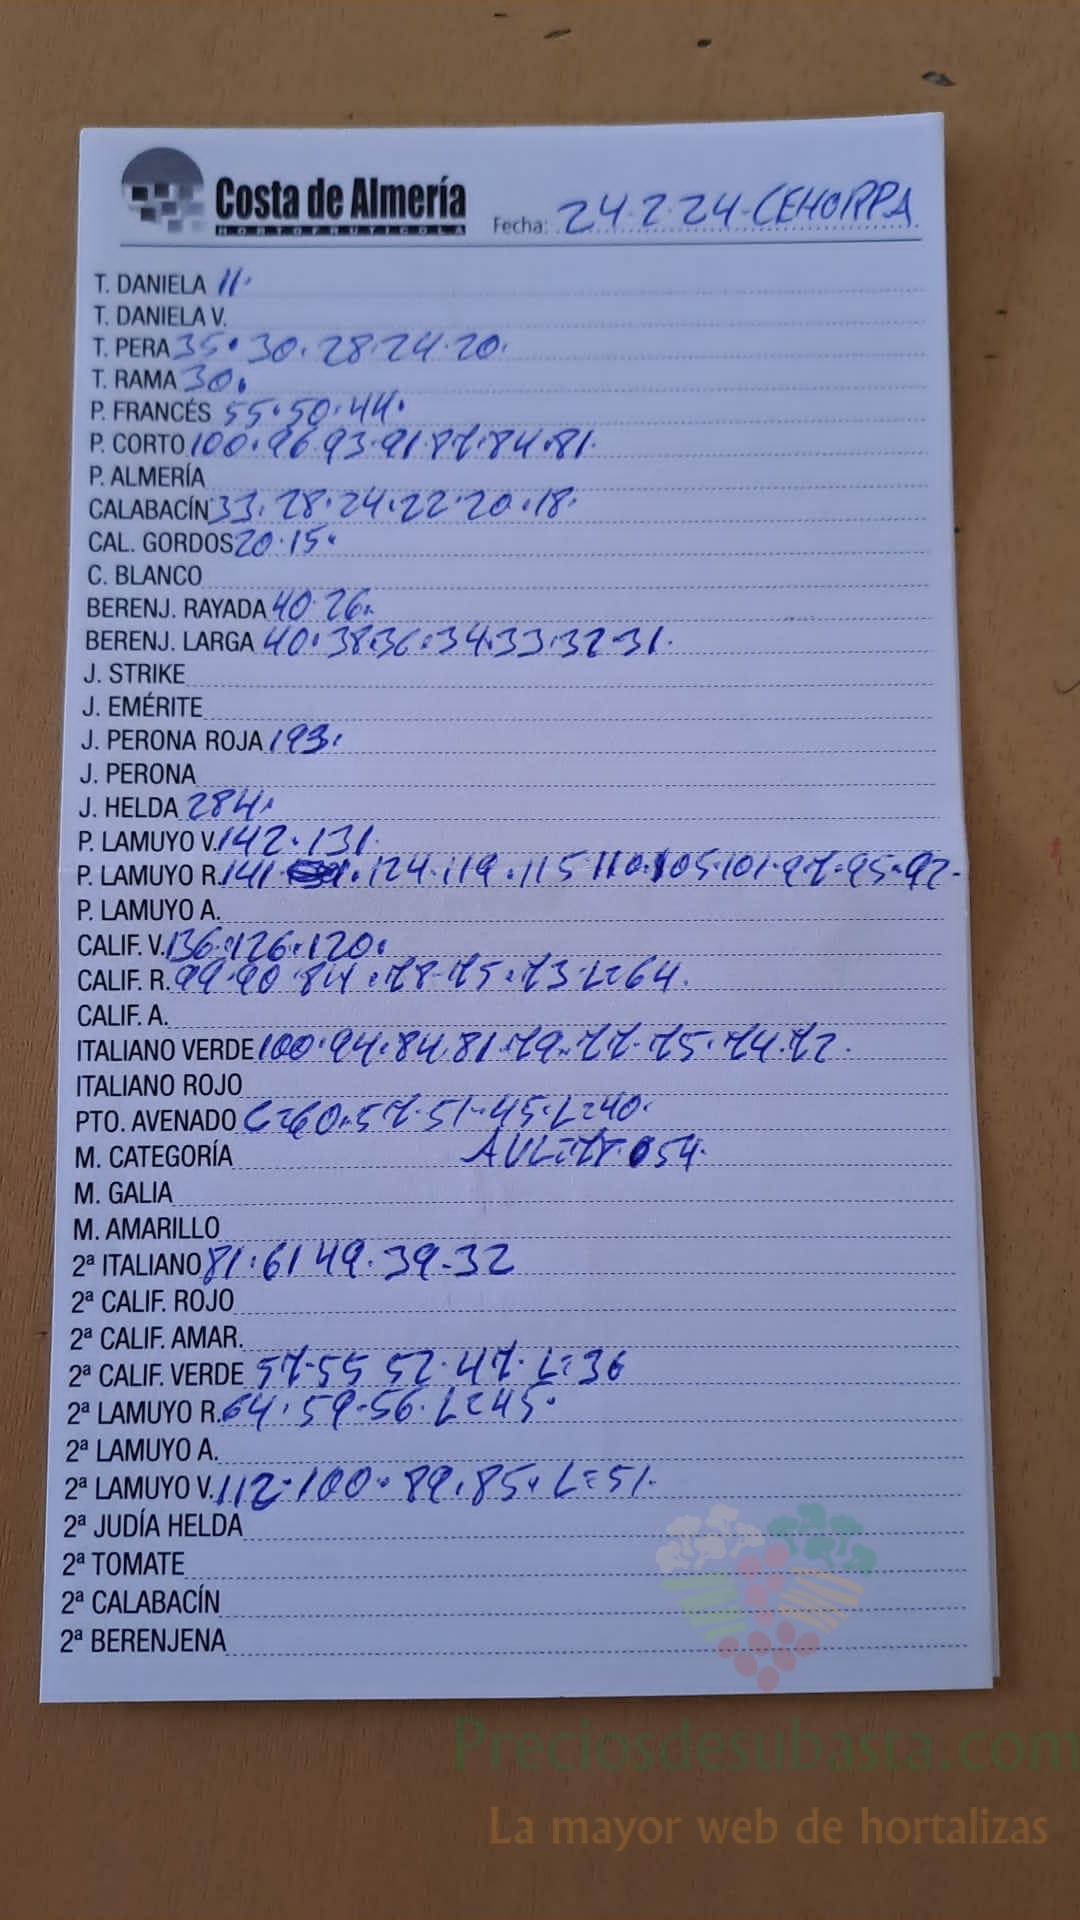 Costa de Almería
HORTOFRUTICOLA
Fecha: 24·2·24-CEHORPA
T. DANIELA 11·
T. DANIELA V.
T. PERA 35·30·28·24·20·
T. RAMA 30·
P. FRANCÉS 55·50·44·
P. CORTO 100·96·93·91·87·84·81·
P. ALMERÍA
CALABACÍN 33·28·24·22·20·18·
CAL. GORDOS 20·15·
C. BLANCO
BERENJ. RAYADA 40·26·
BERENJ. LARGA 40·38·36·34·33·32·31·
J. STRIKE
J. EMÉRITE
J. PERONA ROJA 193·
J. PERONA
J. HELDA 284·
P. LAMUYO V. 142·131·
P. LAMUYO R. 141·124·119·115·110·105·101·97·95·92-
P. LAMUYO A.
CALIF. V. 136·126·120·
CALIF. R. 99·90·84·78-75·73·L=64·
CALIF. A.
ITALIANO VERDE 100·94·84·81·79·77·75·74·72·
ITALIANO ROJO
PTO. AVENADO C=60·57·51·45·L=40·
M. CATEGORÍA 54·
M. GALIA
M. AMARILLO
2ª ITALIANO 81·61·49·39-32
2ª CALIF. ROJO
2ª CALIF. AMAR.
2ª CALIF. VERDE 57·55·52·47·L=36
2ª LAMUYO R. 64·59-56·L=45·
2ª LAMUYO A.
2ª LAMUYO V. 112·100·89·85·L=51·
2ª JUDÍA HELDA
2ª TOMATE
2ª CALABACÍN
2ª BERENJENA
Preciosdesubasta.com
La mayor web de hortalizas